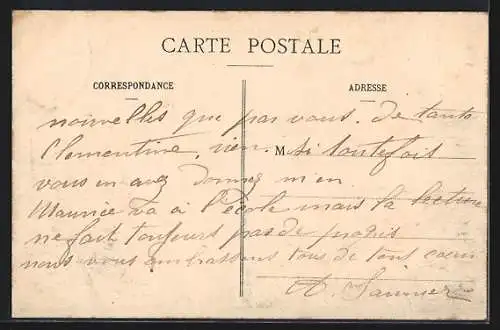 CARTE POSTALE
CORRESPONDANCE
ADRESSE
nouvelles que par vous. de tante
Clementine, rien. M si toutefois
vous en avez donnez m'en
Maurice va à l'école mais la lecture
ne fait toujours pas de progrès
nous vous embrassons tous de tout coeur
A. Saunier